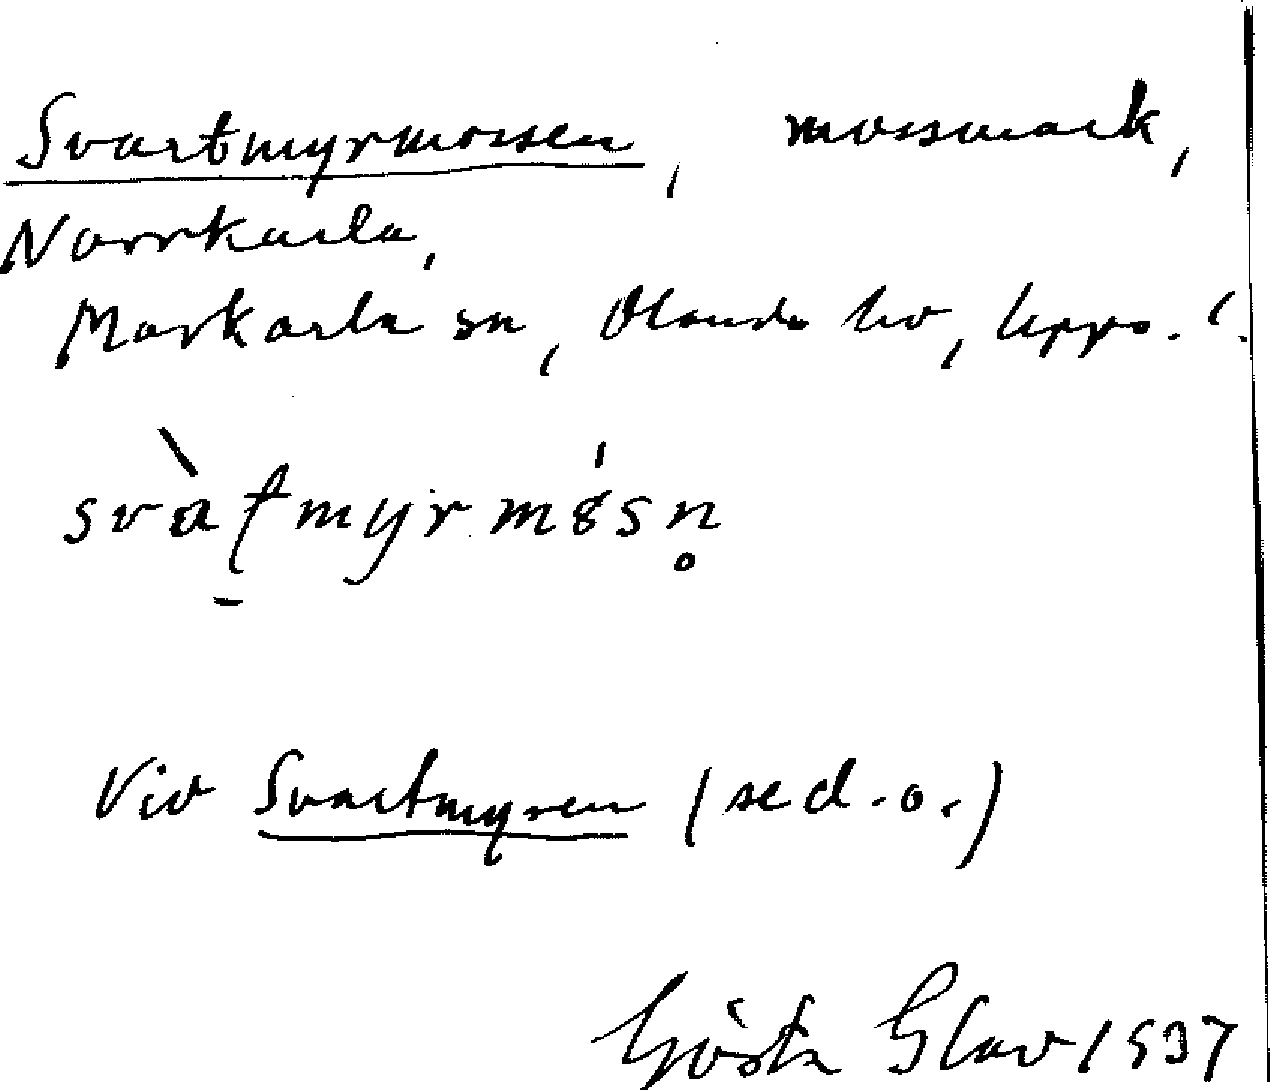 Svartmyrmossen, mossmark,
Norrkarla,
Morkarla sn, Olands hd, Upps. l.
Vid Svartmyren (se d. o.)
Gösta Glav 1937